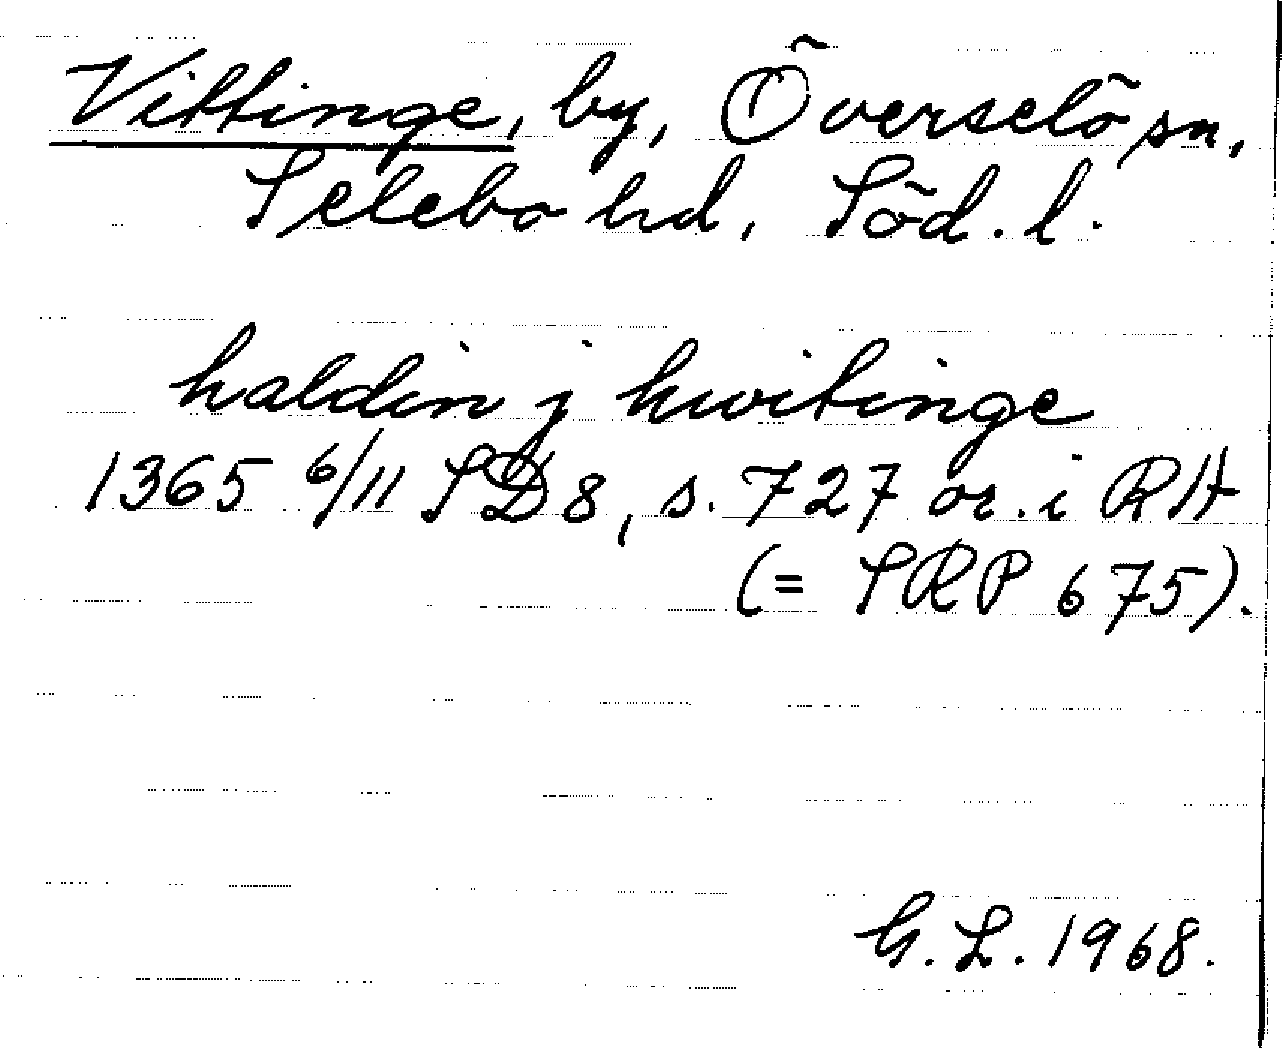 Vittinge, by, Överselö sn,
Selebo hd, Söd. l.
haldin j hwitinge
1365 6/11 SD 8, s. 727 or. i RA
(= SRP 675).
G. L. 1968.